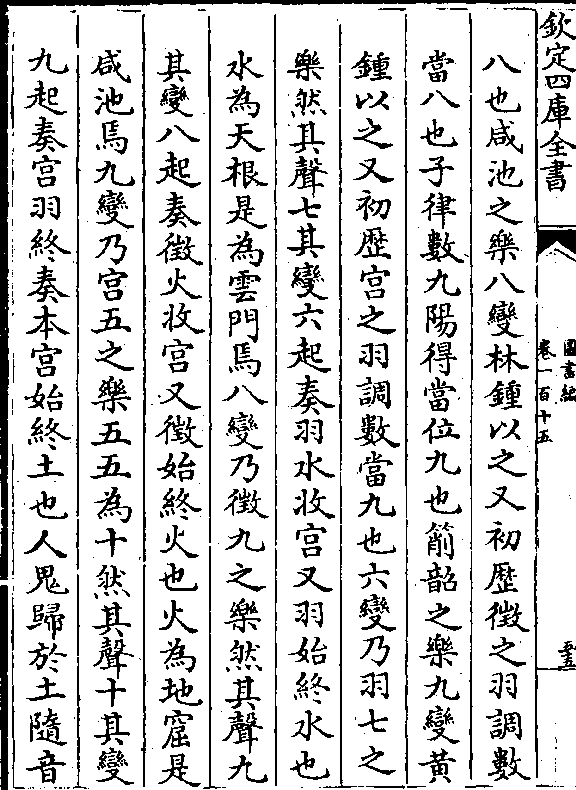 欽定四庫全書
圖書編
卷一百十五
八也咸池之樂八變林鍾以之又初歷徵之羽調數
當八也子律數九陽得當位九也箾韶之樂九變黄
鍾以之又初歷宫之羽調數當九也六變乃羽七之
樂然其聲七其變六起奏羽水收宫又羽始終水也
水為天根是為雲門焉八變乃徵九之樂然其聲九
其變八起奏徵火收宫又徵始終火也火為地窟是
咸池焉九變乃宫五之樂五五為十然其聲十其變
九起奏宫羽終奏本宫始終土也人鬼歸於土隨音